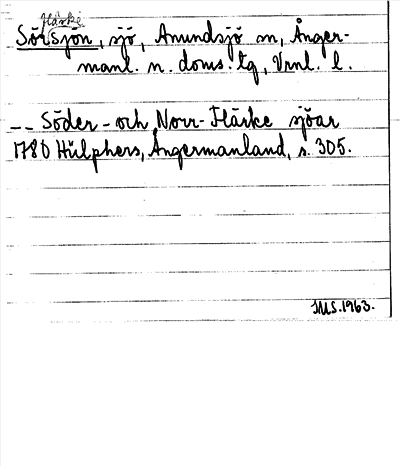 Flärke
Sörsjön, sjö, Anundsjö sn, Ånger-
manl. n. doms. tg, Vrnl. l.
-- Söder- och Norr-Flärke sjöar
1780 Hülphers, Ångermanland, s. 305.
IMS. 1963.